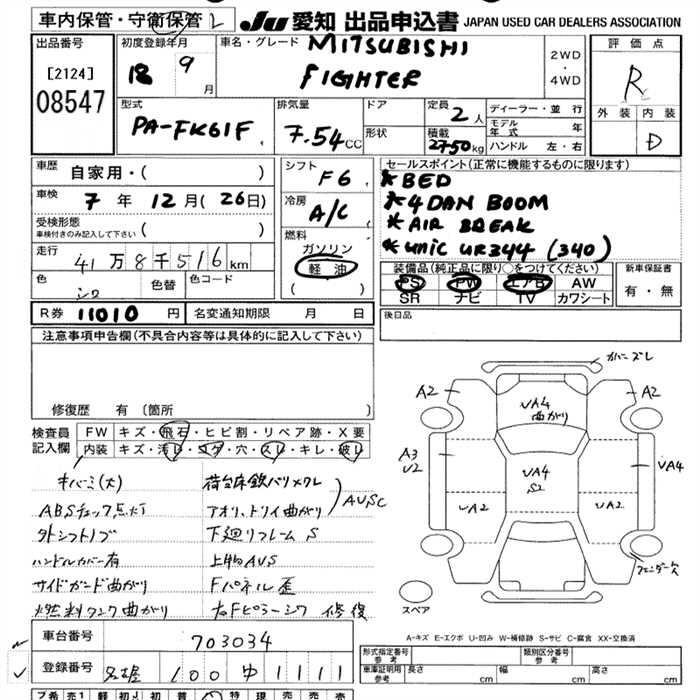 車内保管・守衛保管 L
JU 愛知 出品申込書 JAPAN USED CAR DEALERS ASSOCIATION
出品番号
[2124]
08547
初度登録年月
18 9 月
車名・グレード MITSUBISHI
FIGHTER
2WD
・
4WD
評価点
R
外装 内装
D
型式
PA-FK61F
排気量
7.54 CC
ドア
形状
定員
2 人
積載
2750 kg
ディーラー・並行
モデル年式 年
ハンドル 左・右
車歴
自家用・( )
車検
7 年 12 月 (26日)
受検形態
車検付きのみ記入して下さい ( )
走行
41万8千516 km
色
シロ
色替
色コード
シフト
F6
冷房
A/C
燃料
ガソリン
軽油
( )
セールスポイント(正常に機能するものに限ります)
*BED
*4 DAN BOOM
*AIR BREAK
*UNIC UR344 (340)
装備品(純正品に限り○をつけてください)
PS PW エアB AW
SR ナビ TV カワシート
新車保証書
有・無
R券 11010 円 名変通知期限 月 日
後日品
注意事項申告欄(不具合内容等は具体的に記入して下さい)
修復歴 有 〔箇所 〕
検査員
記入欄
FW キズ・飛石・ヒビ割・リペア跡・X要
内装 キズ・汚レ・コゲ・穴・スレ・キレ・破レ
キバミ(大)
ABSチェック点灯
外シフトノブ
ハンドルカバー有
サイドガード曲がり
燃料タンク曲がり
荷台床鉄バリメクレ
アオリ、トリイ曲がり
AUSC
下廻リフレームS
上物AUS
Fパネル歪
右Fピラーシワ 修復
カバーズレ
A2
UA4
曲がり
A2
A3
U2
UA4
S2
UA4
UA2
UA2
フェンダーズレ
スペア
A-キズ E-エクボ U-凹み W-補修跡 S-サビ C-腐食 XX-交換済
車台番号
703034
登録番号
名古屋 100 ゆ 1111
形式指定番号
参考
類別区分番号
参考
車庫証明用
参考
長さ cm 幅 cm 高さ cm